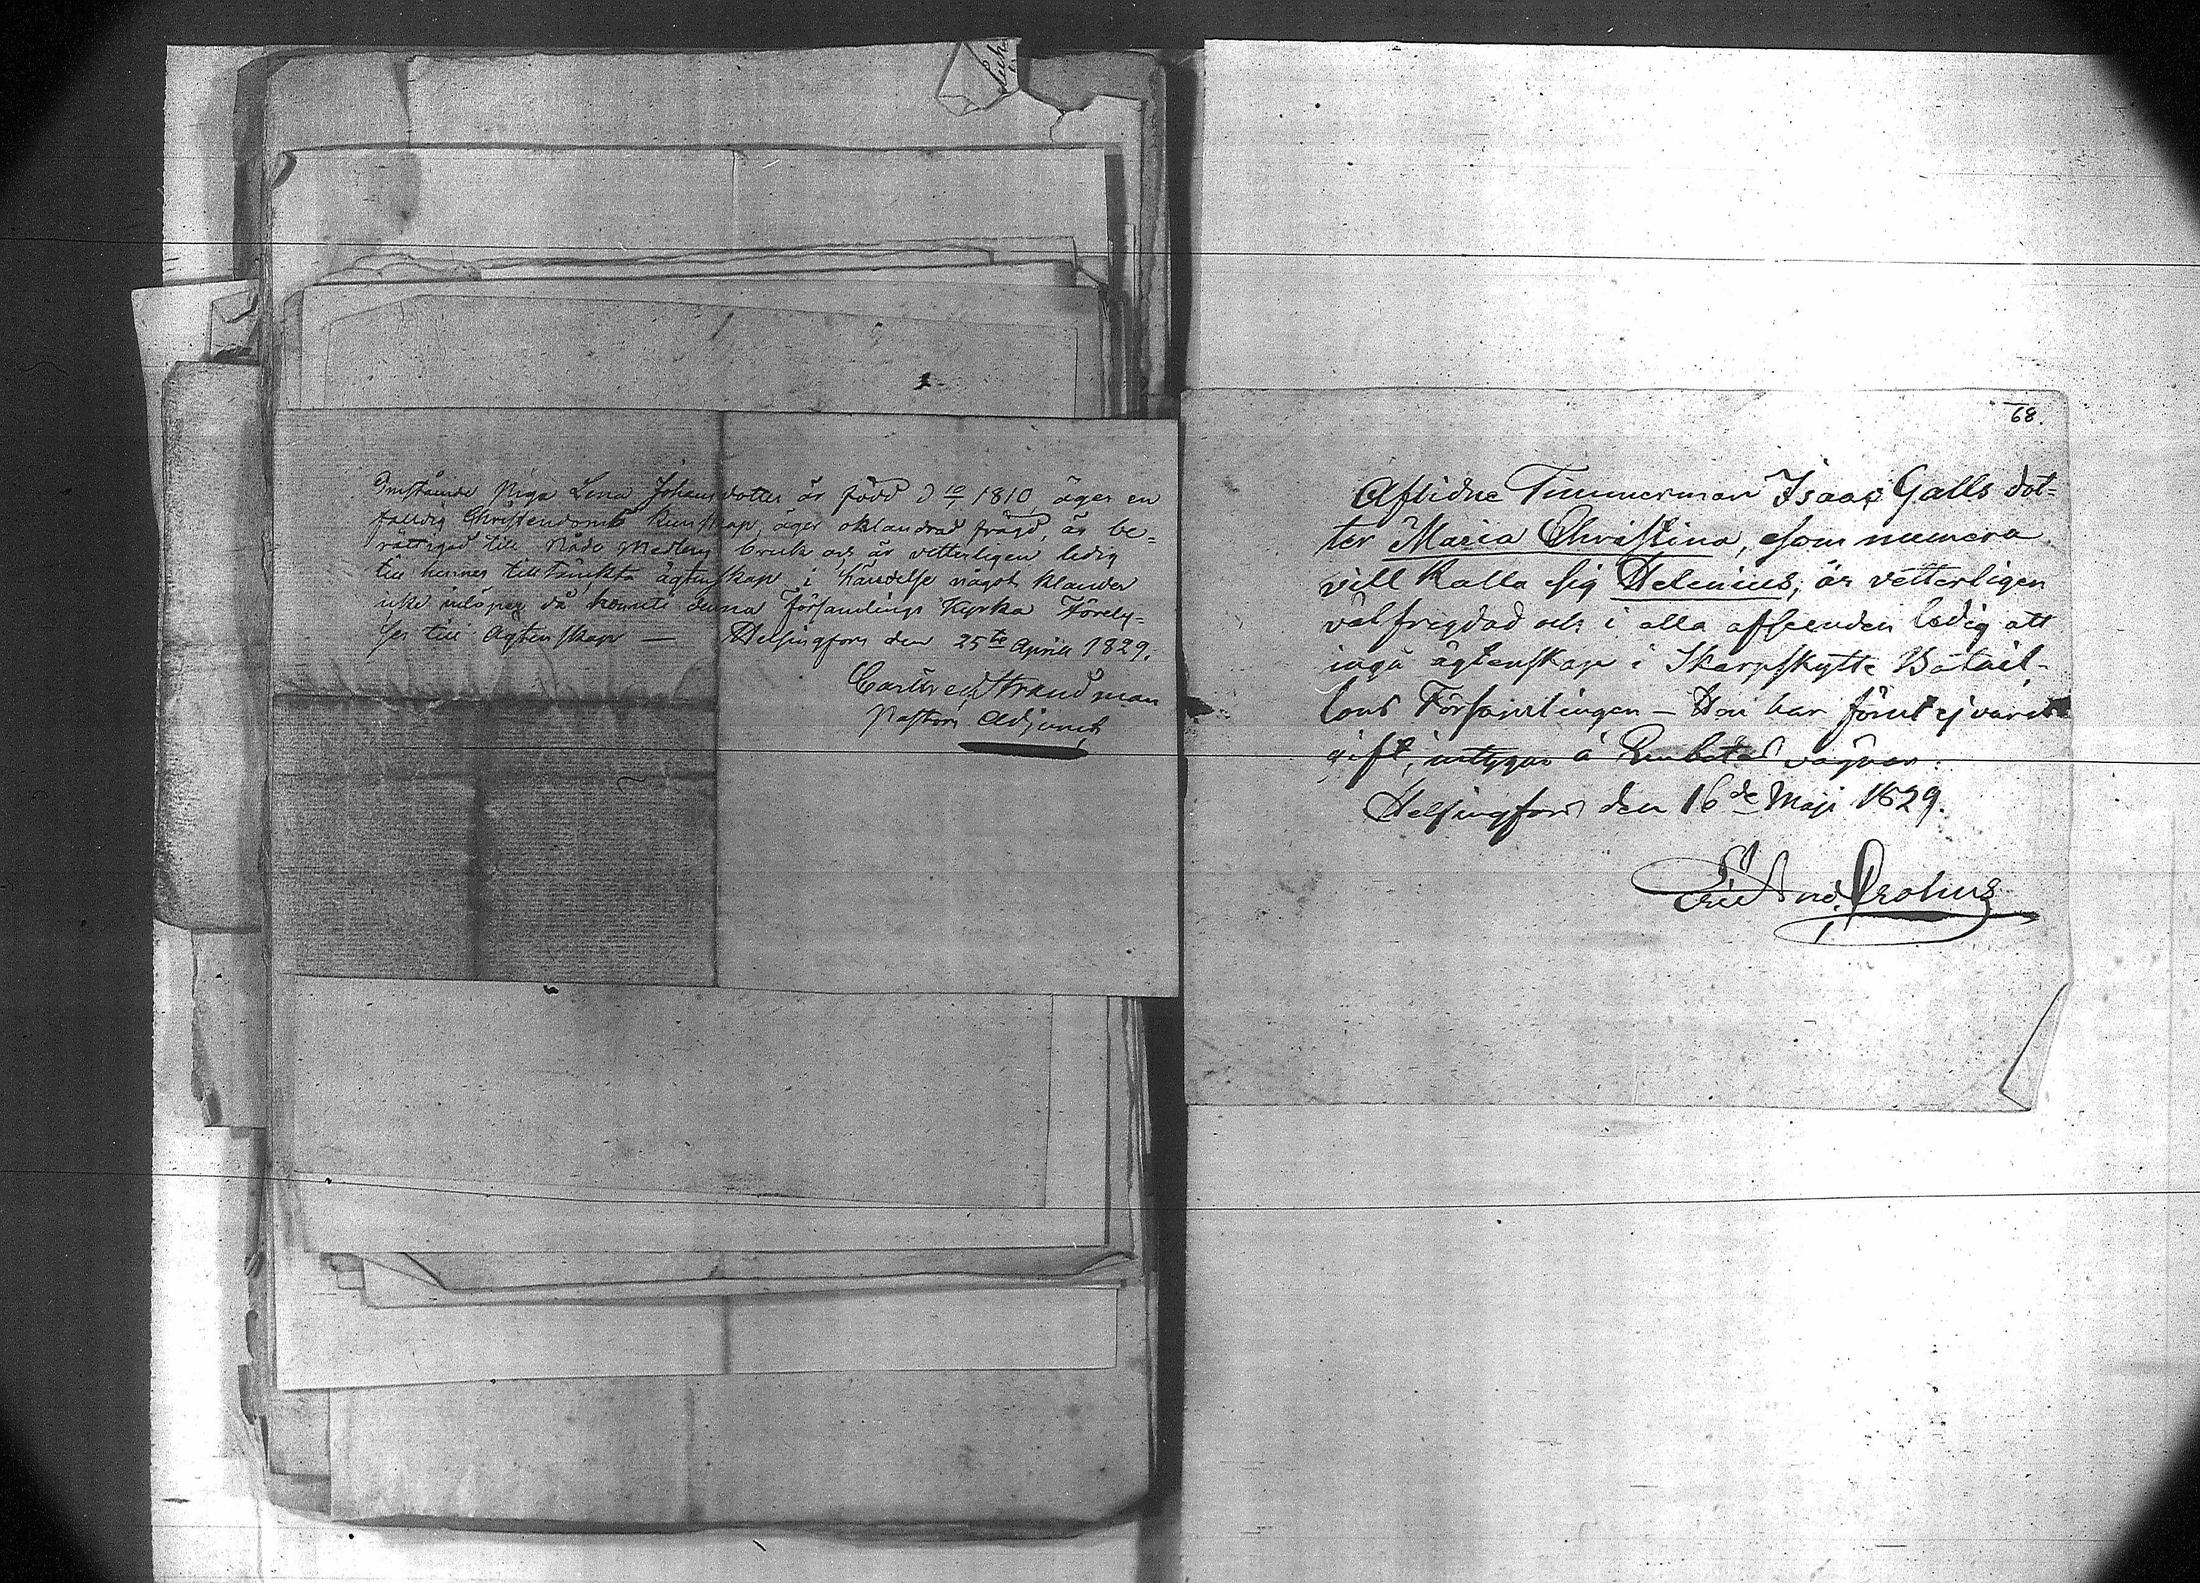 Omstående Piga Lena Johansdotter är född d 10/7 1810, äger en
falldig Christendoms kunskap, äger oklandrad frägd, är be-
rättigad till Nåde Medlens bruk och är vetterligen ledig
till hennes tilltänkta ägtenskap i händelse något klander
icke inlöper då hennes denna Församlings Kyrka Forely-
ses till Ägtenskap — Helsingfors den 25te April 1829.
Carl Fred Strandman
Pastors Adjunct
68.
Aflidne Timmerman Isaac Galls dot-
ter Maria Christina, som numera
vill kalla sig Helenius, är vetterligen
välfrägdad och i alla afseenden ledig att
ingå ägtenskap i Skarpskytte Batail-
lons Församlingen – Hon har förut ej varit
gift, intygar å Embetes vägnar.
Helsingfors den 16de Maji 1829.
Eric And. Crohns